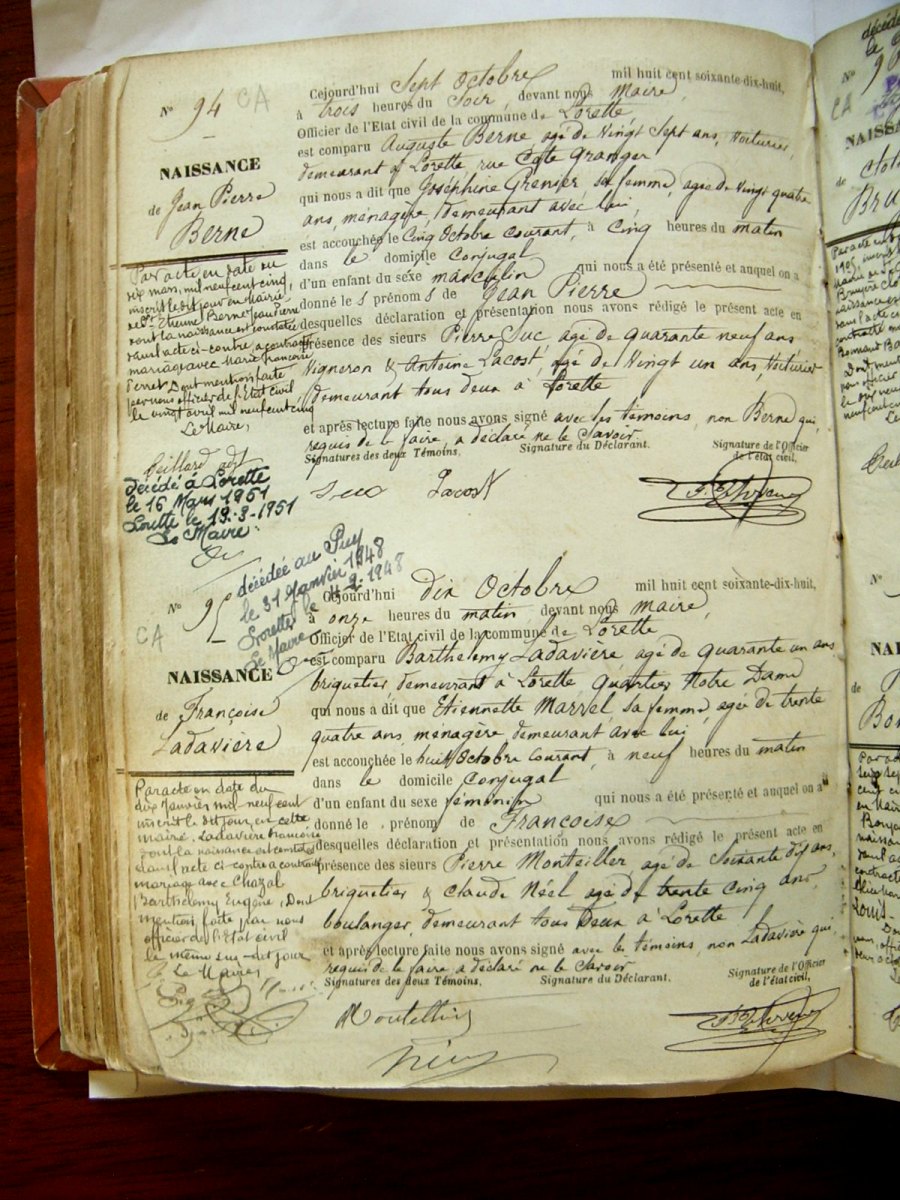 N° 94 CA
NAISSANCE
de Jean Pierre
Berne
Par acte en date du
six mars, mil neuf cent cinq,
inscrit le dit jour en Mairie
de St Etienne, Berne Jean Pierre
dont la naissance est constatée
dans l'acte ci-contre a contracté
mariage avec Marie Françoise
Perret. Dont mention faite
par nous officier de l'Etat civil
le vingt avril mil neuf cent cinq
Le Maire,
décédé à Lorette
le 16 Mars 1951
Lorette le 19-3-1951
Le Maire:
Cejourd'hui Sept Octobre mil huit cent soixante-dix-huit,
à trois heures du Soir, devant nous Maire,
Officier de l'Etat civil de la commune de Lorette
est comparu Auguste Berne agé de Vingt Sept ans, Voiturier,
demeurant à Lorette rue Côte Granger
qui nous a dit que Joséphine Grenier, sa femme, agée de Vingt quatre
ans, ménagère, demeurant avec lui,
est accouchée le Cinq Octobre courant, à Cinq heures du matin
dans le domicile Conjugal
d'un enfant du sexe masculin qui nous a été présenté et auquel on a
donné le s prénom s de Jean Pierre
desquelles déclaration et présentation nous avons rédigé le présent acte en
présence des sieurs Pierre Suc, agé de quarante neuf ans
Vigneron & Antoine Lacost, agé de Vingt un ans, Voiturier
demeurant tous deux à Lorette
et après lecture faite nous avons signé avec les témoins, non Berne qui,
requis de le faire, a déclaré ne le Savoir.
Signatures des deux Témoins, Signature du Déclarant. Signature de l'Officier
de l'état civil,
Suc Lacost
décédée au Puy
le 31 Janvier 1948
Lorette le 4-2-1948
Le Maire
N° 95
CA
NAISSANCE
de Françoise
Ladavière
Par acte en date du
dix janvier mil-neuf cent
inscrit le dit jour en cette
mairie. Ladavière Françoise
dont la naissance est constatée
dans l'acte ci-contre a contracté
mariage avec Chazal
Barthélemy Eugène. Dont
mention faite par nous
officier de l'Etat civil
le même sus-dit jour
Le Maire,
Cejourd'hui dix Octobre mil huit cent soixante-dix-huit,
à onze heures du matin, devant nous maire,
Officier de l'Etat civil de la commune de Lorette
est comparu Barthélemy Ladavière agé de quarante un ans
briquetier, demeurant à Lorette quartier Notre Dame
qui nous a dit que Etiennette Marrel, sa femme, agée de trente
quatre ans, ménagère, demeurant avec lui
est accouchée le huit Octobre courant, à neuf heures du matin
dans le domicile Conjugal
d'un enfant du sexe féminin qui nous a été présenté et auquel on a
donné le prénom de Françoise
desquelles déclaration et présentation nous avons rédigé le présent acte en
présence des sieurs Pierre Monteiller, agé de Soixante dix ans,
briquetier & Claude Néel agé de trente Cinq ans,
boulanger, demeurant tous Deux à Lorette
et après lecture faite nous avons signé avec le témoins, non Ladavière qui,
requis de le faire a déclaré ne le Savoir
Signatures des deux Témoins, Signature du Déclarant. Signature de l'Officier
de l'état civil,